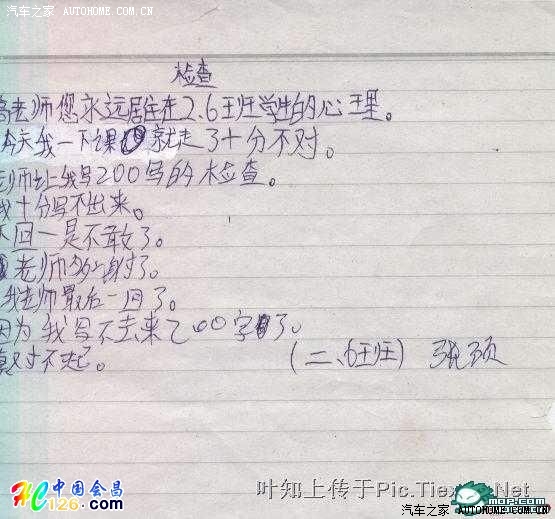 汽车之家 AUTOHOME.COM.CN
检查
高老师您永远居住在2.6班学生的心理。
今天我一下课就走了十分不对。
老师让我写200写的检查。
我十分写不出来。
下回一是不敢了。
老师多谢了。
我老师最后一回了。
因为我写不去来200字了。
真对不起。
(二、6班) 张颈
HC 中国会昌
126.com
叶知上传于Pic.Tiexue.Net
MOP.COM
汽车之家 AUTOHOME.COM.CN